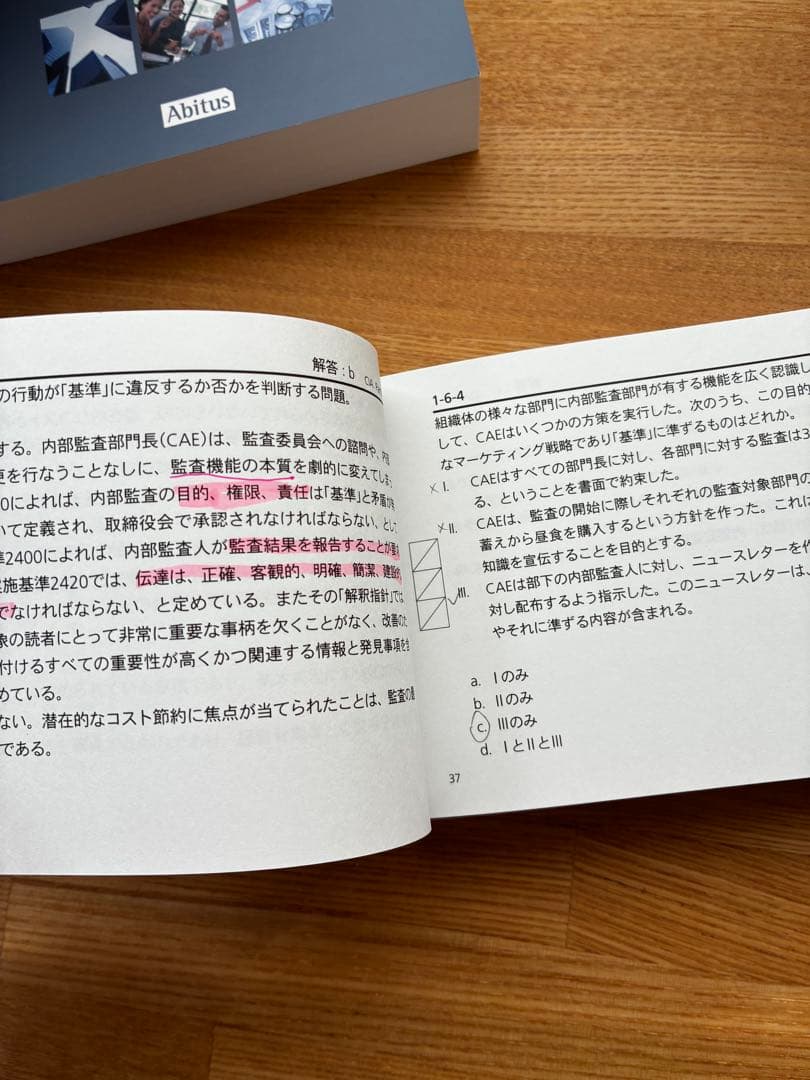 Abitus
解答：b
の行動が「基準」に違反するか否かを判断する問題。
する。内部監査部門長(CAE)は、監査委員会への諮問や、内
更を行なうことなしに、監査機能の本質を劇的に変えてしま
0によれば、内部監査の目的、権限、責任は「基準」と矛盾
いて定義され、取締役会で承認されなければならない、とし
準2400によれば、内部監査人が監査結果を報告することが
実施基準2420では、伝達は、正確、客観的、明確、簡潔、建設的
でなければならない、と定めている。またその「解釈指針」では
象の読者にとって非常に重要な事柄を欠くことがなく、改善の
付けるすべての重要性が高くかつ関連する情報と発見事項を
めている。
ない。潜在的なコスト節約に焦点が当てられたことは、監査の
である。
1-6-4
組織体の様々な部門に内部監査部門が有する機能を広く認識し
して、CAEはいくつかの方策を実行した。次のうち、この目的
なマーケティング戦略であり「基準」に準ずるものはどれか。
× I. CAEはすべての部門長に対し、各部門に対する監査は3
る、ということを書面で約束した。
× II. CAEは、監査の開始に際しそれぞれの監査対象部門の
蓄えから昼食を購入するという方針を作った。これは
知識を宣伝することを目的とする。
✓ III. CAEは部下の内部監査人に対し、ニュースレターを作
対し配布するよう指示した。このニュースレターは、
やそれに準ずる内容が含まれる。
a. Iのみ
b. IIのみ
c. IIIのみ
d. IとIIとIII
37